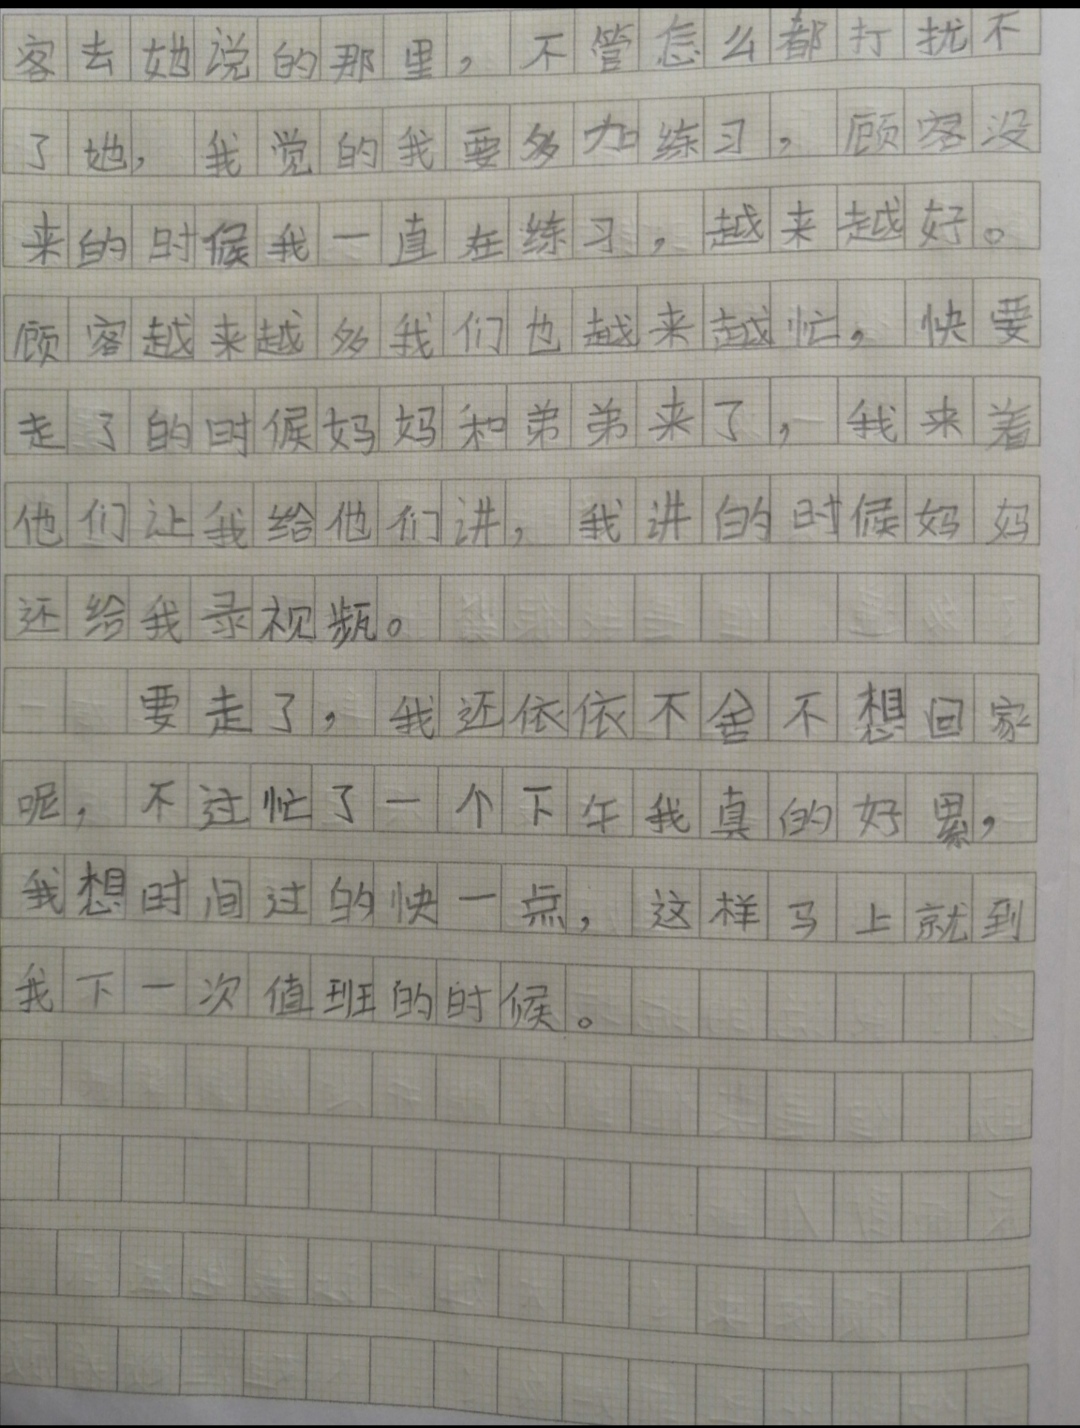 客去她说的那里，不管怎么都打扰不
了她，我觉的我要多加练习，顾客没
来的时候我一直在练习，越来越好。
顾客越来越多我们也越来越忙，快要
走了的时候妈妈和弟弟来了，我来着
他们让我给他们讲，我讲的时候妈妈
还给我录视频。
要走了，我还依依不舍不想回家
呢，不过忙了一个下午我真的好累，
我想时间过的快一点，这样马上就到
我下一次值班的时候。